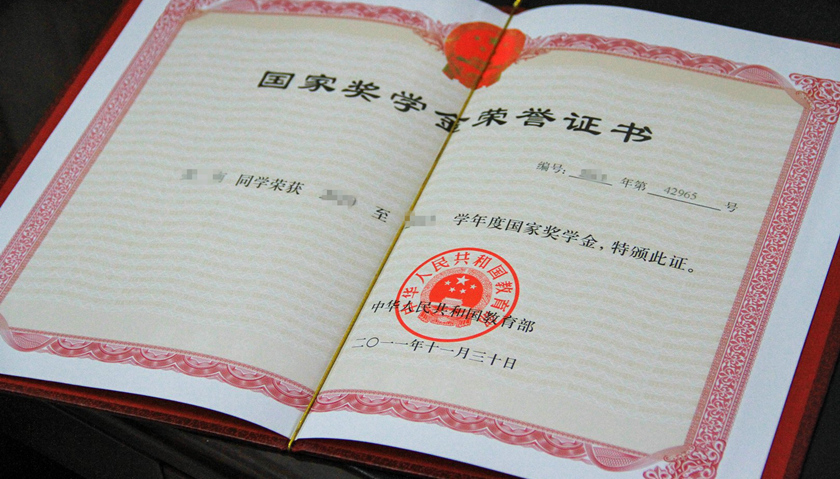 国家奖学金荣誉证书
编号: 年第 42965 号
同学荣获 至 学年度国家奖学金，特颁此证。
中华人民共和国教育部
中华人民共和国教育部
二〇一一年十一月三十日